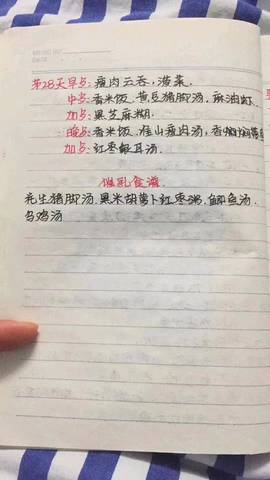 第28天早点:瘦肉云吞,菠菜.
中点:香米饭.黄豆猪脚汤,麻油虾.
加点:黑芝麻糊.
晚点:香米饭,淮山瘦肉汤,香焖
加点:红枣银耳汤.
催乳食谱
花生猪脚汤.黑米胡萝卜红枣粥.鲫鱼汤.
乌鸡汤